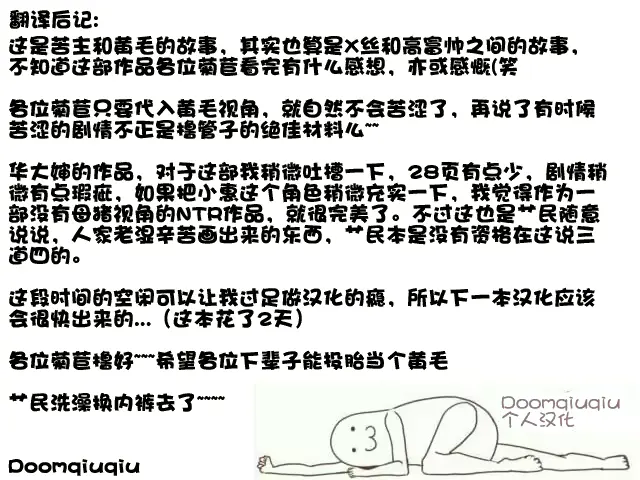 翻译后记:
这是苦主和黄毛的故事，其实也算是X丝和高富帅之间的故事，
不知道这部作品各位菊苣看完有什么感想，亦或感慨(笑
各位菊苣只要代入黄毛视角，就自然不会苦涩了，再说了有时候
苦涩的剧情不正是撸管子的绝佳材料么~~
华大婶的作品，对于这部我稍微吐槽一下，28页有点少，剧情稍
微有点瑕疵，如果把小惠这个角色稍微充实一下，我觉得作为一
部没有母猪视角的NTR作品，就很完美了。不过这也是艹民随意
说说，人家老湿辛苦画出来的东西，艹民本是没有资格在这说三
道四的。
这段时间的空闲可以让我过足做汉化的瘾，所以下一本汉化应该
会很快出来的...（这本花了2天）
各位菊苣撸好~~~希望各位下辈子能投胎当个黄毛
艹民洗澡换内裤去了~~~~
Doomqiuqiu
个人汉化
Doomqiuqiu